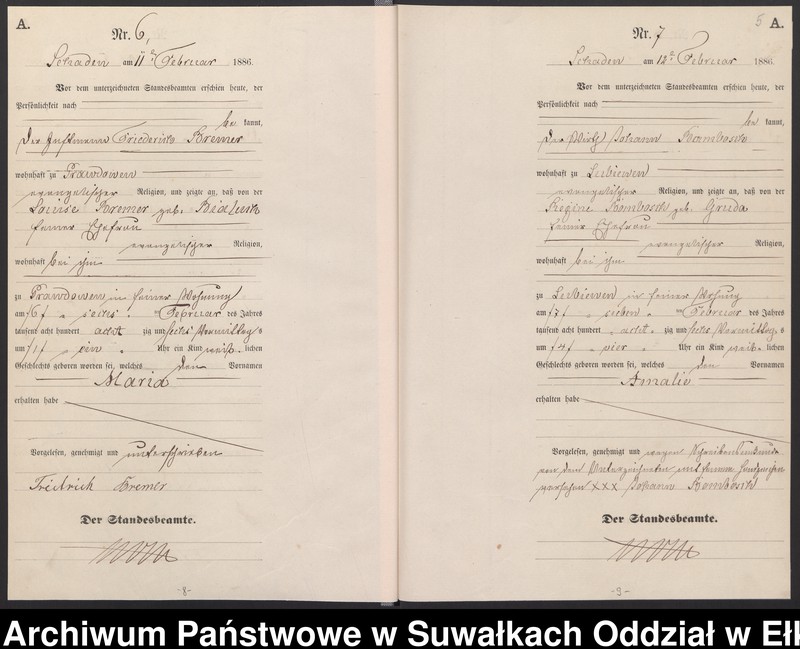 A.
Nr. 6,
Schaden am 11 Februar 1886.
Vor dem unterzeichneten Standesbeamten erschien heute, der
Persönlichkeit nach
be kannt,
der Friederich Bremer
wohnhaft zu Prawdowen
evangelischer Religion, und zeigte an, daß von der
Louise Bremer geb.
seiner Ehefrau
evangelischer Religion,
wohnhaft bei ihm
zu Prawdowen in seiner Wohnung
am 6 sechs ten Februar des Jahres
tausend acht hundert acht zig und sechs Vormittag s
um 1 ein Uhr ein Kind weib lichen
Geschlechts geboren worden sei, welches den Vornamen
Maria
erhalten habe
Vorgelesen, genehmigt und unterschrieben
Friedrich Bremer
Der Standesbeamte.
-8-
5 A.
Nr. 7
Schaden am 12 Februar 1886
Vor dem unterzeichneten Standesbeamten erschien heute, der
Persönlichkeit nach
be kannt,
der Wirth Johann
wohnhaft zu Lubiewen
evangelischer Religion, und zeigte an, daß von der
Regine geb. Gruda
seiner Ehefrau
evangelischer Religion,
wohnhaft bei ihm
zu Lubiewen in seiner Wohnung
am 7 sieben ten Februar des Jahres
tausend acht hundert acht zig und sechs Vormittag s
um 4 vier Uhr ein Kind weib lichen
Geschlechts geboren worden sei, welches den Vornamen
Amalie
erhalten habe
Vorgelesen, genehmigt und wegen Schreibensunkunde
von dem Unterzeichneten mit seinem Handzeichen
versehen XXX Johann
Der Standesbeamte.
-9-
Archiwum Państwowe w Suwałkach Oddział w Ełk